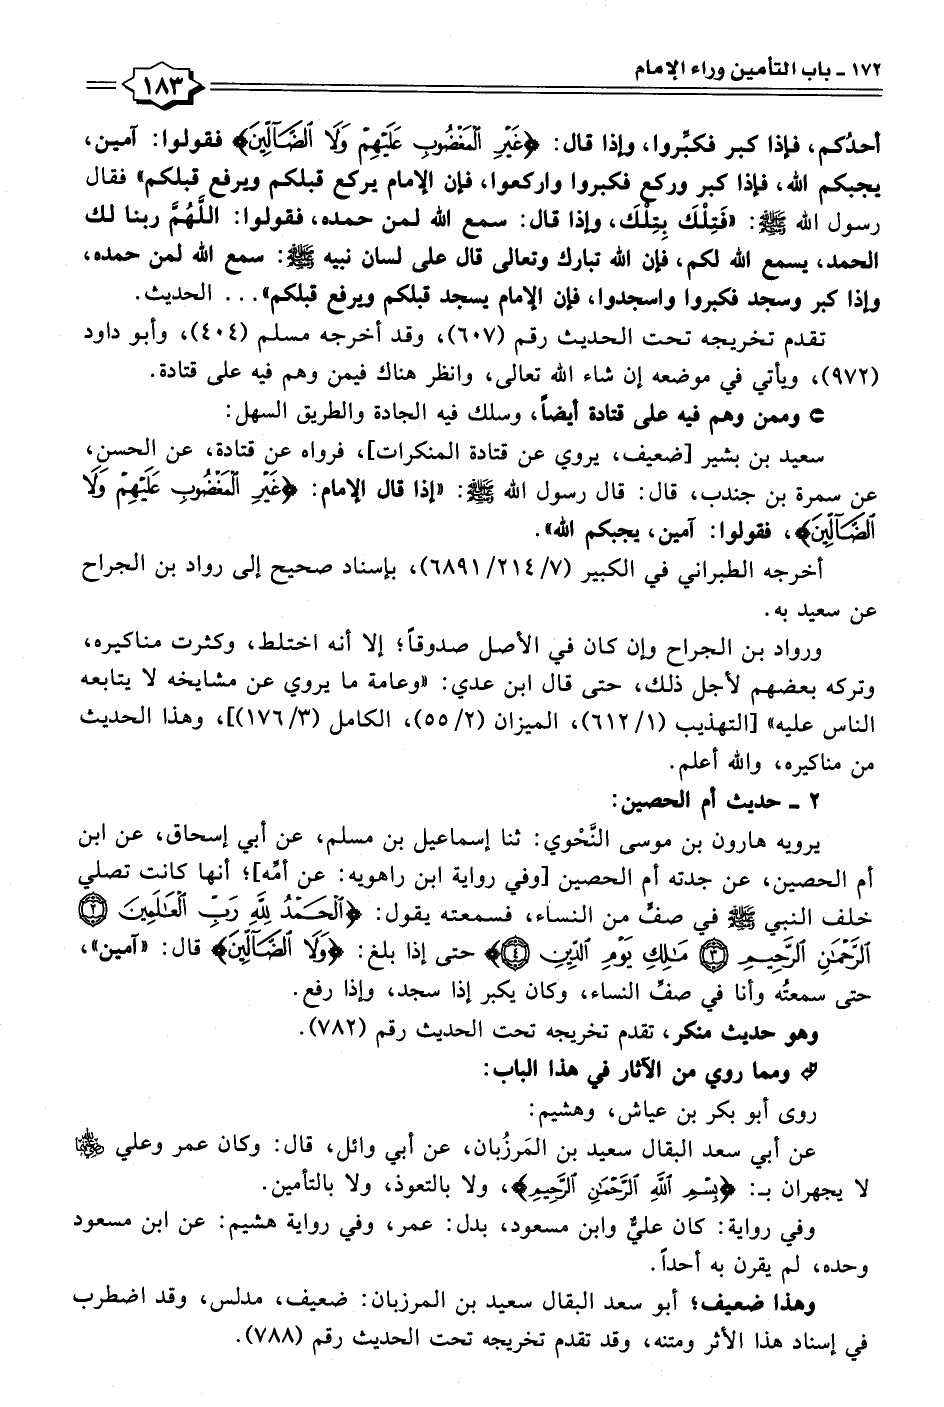 ١٧٢ - باب التأمين وراء الإمام
١٨٣
أحدُكم، فإذا كبر فكبِّروا، وإذا قال: ﴿غَيْرِ الْمَغْضُوبِ عَلَيْهِمْ وَلَا الضَّآلِّينَ﴾ فقولوا: آمين،
يجبكم الله، فإذا كبر وركع فكبروا واركعوا، فإن الإمام يركع قبلكم ويرفع قبلكم» فقال
رسول الله ﷺ: «فَتِلْكَ بِتِلْكَ، وإذا قال: سمع الله لمن حمده، فقولوا: اللَّهُمَّ ربنا لك
الحمد، يسمع الله لكم، فإن الله تبارك وتعالى قال على لسان نبيه ﷺ: سمع الله لمن حمده،
وإذا كبر وسجد فكبروا واسجدوا، فإن الإمام يسجد قبلكم ويرفع قبلكم»... الحديث.
تقدم تخريجه تحت الحديث رقم (٦٠٧)، وقد أخرجه مسلم (٤٠٤)، وأبو داود
(٩٧٢)، ويأتي في موضعه إن شاء الله تعالى، وانظر هناك فيمن وهم فيه على قتادة.
وممن وهم فيه على قتادة أيضاً، وسلك فيه الجادة والطريق السهل:
سعيد بن بشير [ضعيف، يروي عن قتادة المنكرات]، فرواه عن قتادة، عن الحسن،
عن سمرة بن جندب، قال: قال رسول الله ﷺ: «إذا قال الإمام: ﴿غَيْرِ الْمَغْضُوبِ عَلَيْهِمْ وَلَا
الضَّآلِّينَ﴾، فقولوا: آمين، يجبكم الله».
أخرجه الطبراني في الكبير (٧/ ٢١٤/ ٦٨٩١)، بإسناد صحيح إلى رواد بن الجراح
عن سعيد به.
ورواد بن الجراح وإن كان في الأصل صدوقاً؛ إلا أنه اختلط، وكثرت مناكيره،
وتركه بعضهم لأجل ذلك، حتى قال ابن عدي: «وعامة ما يروي عن مشايخه لا يتابعه
الناس عليه» [التهذيب (١/ ٦١٢)، الميزان (٢/ ٥٥)، الكامل (٣/ ١٧٦)]، وهذا الحديث
من مناكيره، والله أعلم.
٢ - حديث أم الحصين:
يرويه هارون بن موسى النَّحْوي: ثنا إسماعيل بن مسلم، عن أبي إسحاق، عن ابن
أم الحصين، عن جدته أم الحصين [وفي رواية ابن راهويه: عن أمِّه]؛ أنها كانت تصلي
خلف النبي ﷺ في صفٍّ من النساء، فسمعته يقول: ﴿الْحَمْدُ لِلَّهِ رَبِّ الْعَالَمِينَ ٢
الرَّحْمَٰنِ الرَّحِيمِ ٣ مَالِكِ يَوْمِ الدِّينِ ٤﴾ حتى إذا بلغ: ﴿وَلَا الضَّآلِّينَ﴾ قال: «آمين»،
حتى سمعتُه وأنا في صفِّ النساء، وكان يكبر إذا سجد، وإذا رفع.
وهو حديث منكر، تقدم تخريجه تحت الحديث رقم (٧٨٢).
ومما روي من الآثار في هذا الباب:
روى أبو بكر بن عياش، وهشيم:
عن أبي سعد البقال سعيد بن المَرزُبان، عن أبي وائل، قال: وكان عمر وعلي رضي الله عنهما
لا يجهران بـ: ﴿بِسْمِ اللَّهِ الرَّحْمَٰنِ الرَّحِيمِ﴾، ولا بالتعوذ، ولا بالتأمين.
وفي رواية: كان عليٌّ وابن مسعود، بدل: عمر، وفي رواية هشيم: عن ابن مسعود
وحده، لم يقرن به أحداً.
وهذا ضعيف؛ أبو سعد البقال سعيد بن المرزبان: ضعيف، مدلس، وقد اضطرب
في إسناد هذا الأثر ومتنه، وقد تقدم تخريجه تحت الحديث رقم (٧٨٨).